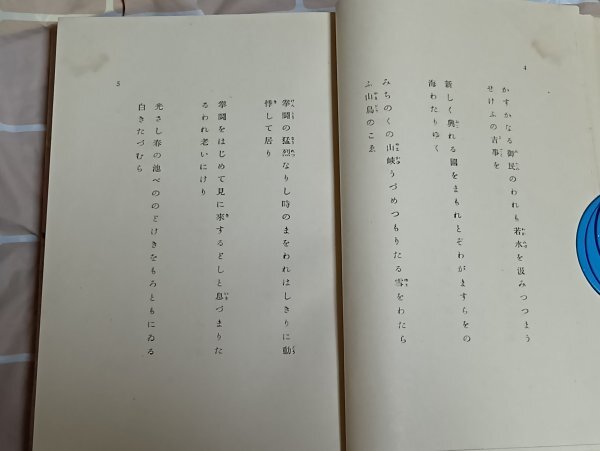 4
かすかなる御民のわれも若水を汲みつつまう
せけふの吉事を
新しく興れる國をまもれとぞわがますらをの
海わたりゆく
みちのくの山峽うづめつもりたる雪をわたら
ふ山鳥のこゑ
5
拳鬪の猛烈なりし時のまをわれはしきりに動
悸して居り
拳鬪をはじめて見に來するどしと息づまりた
るわれ老いにけり
光さし春の池べののどけきをもろともにゐる
白きたづむら